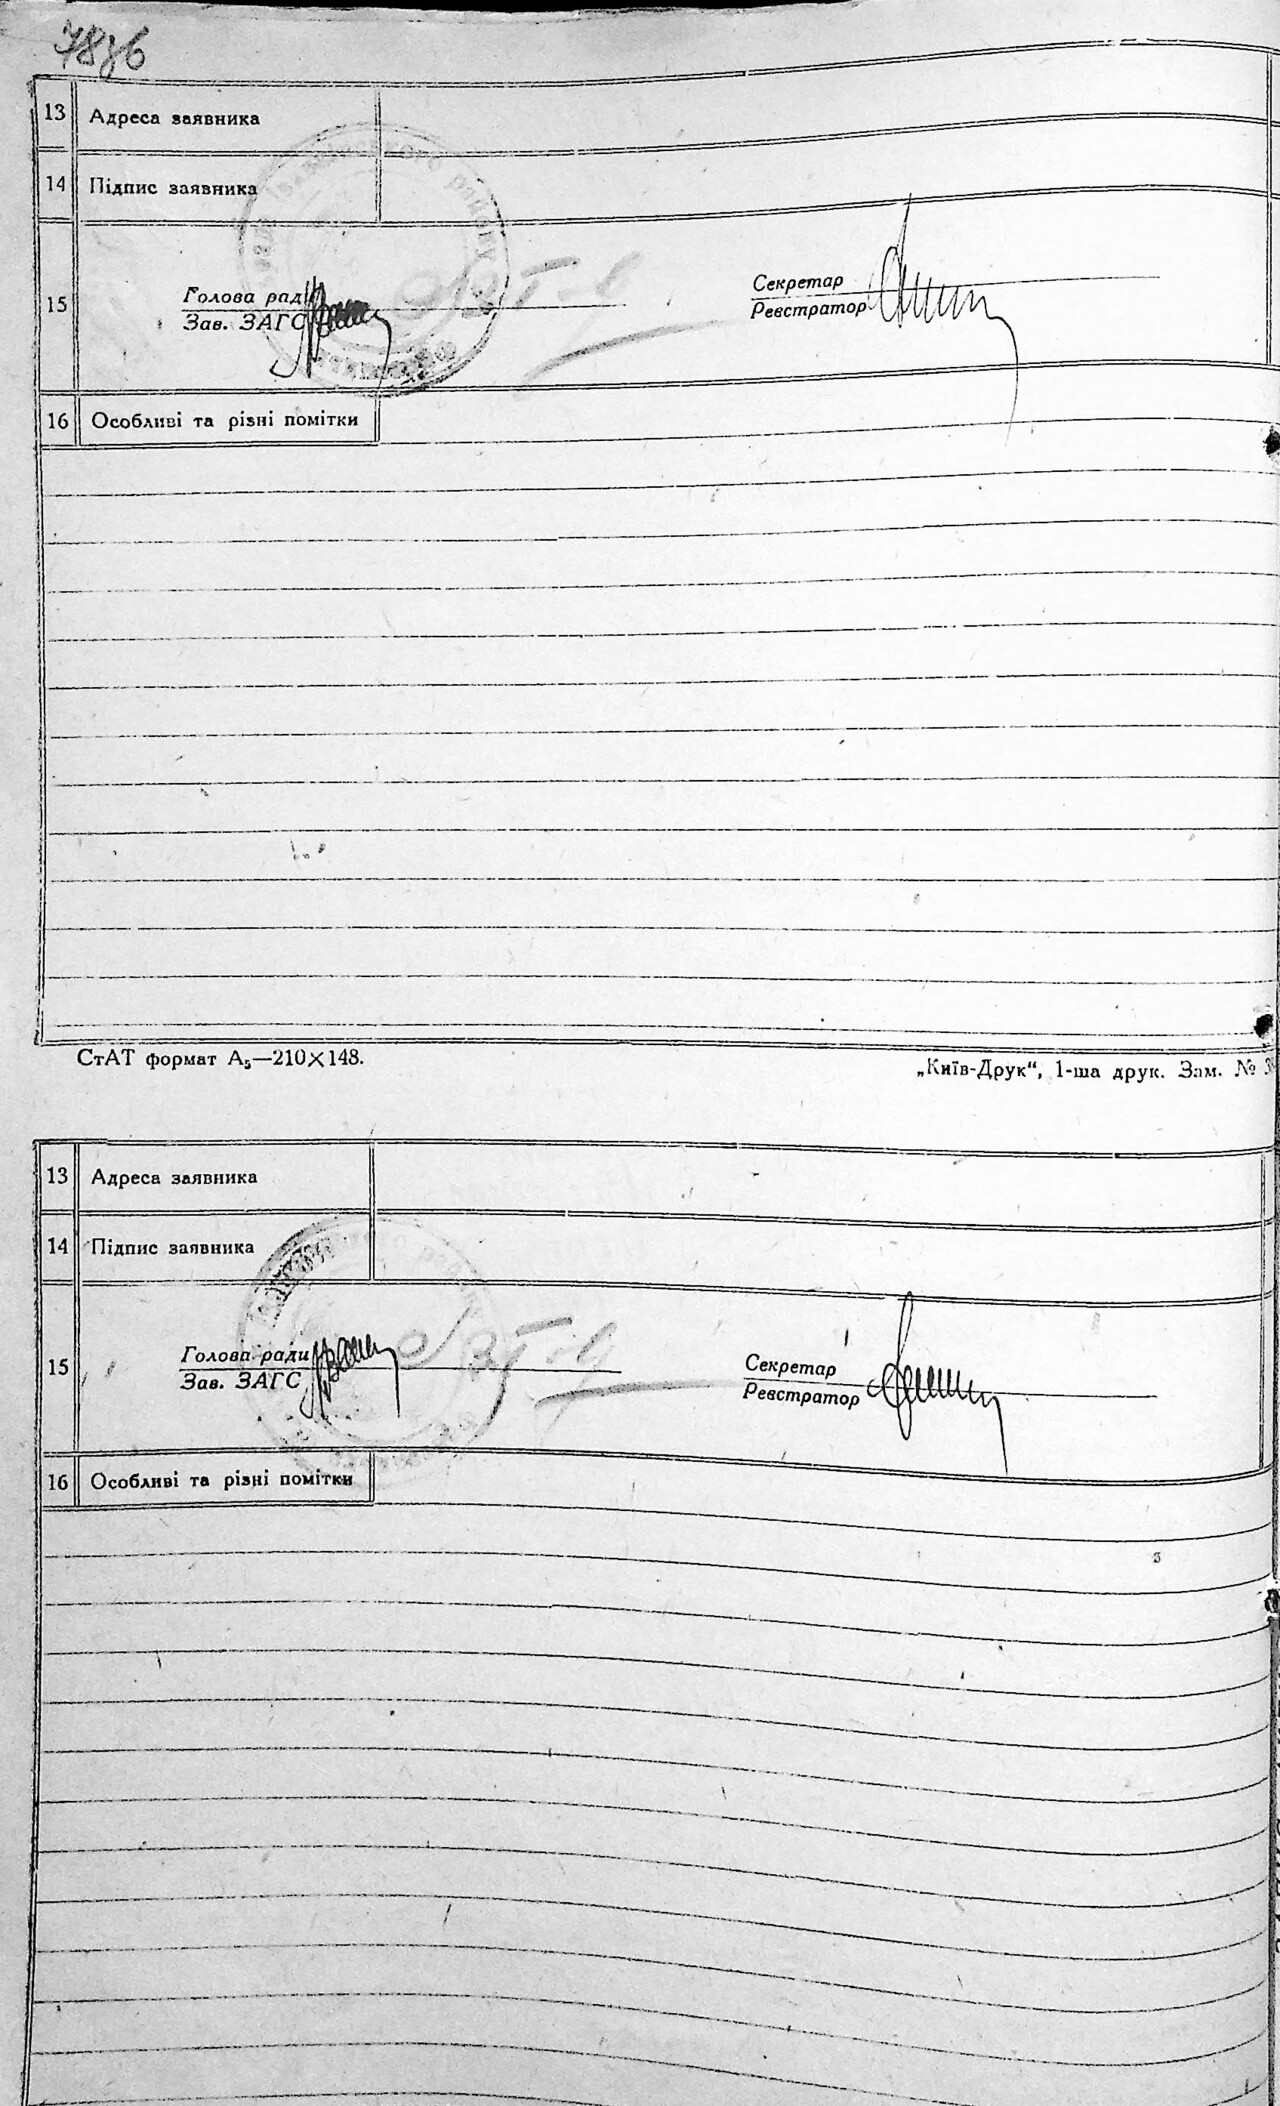 13 Адреса заявника
14 Підпис заявника
15 Голова ради
Зав. ЗАГС
Секретар
Реєстратор
16 Особливі та різні помітки
СтАТ формат А₅—210×148.
„Київ-Друк“, 1-ша друк. Зам. №
13 Адреса заявника
14 Підпис заявника
15 Голова ради
Зав. ЗАГС
Секретар
Реєстратор
16 Особливі та різні помітки